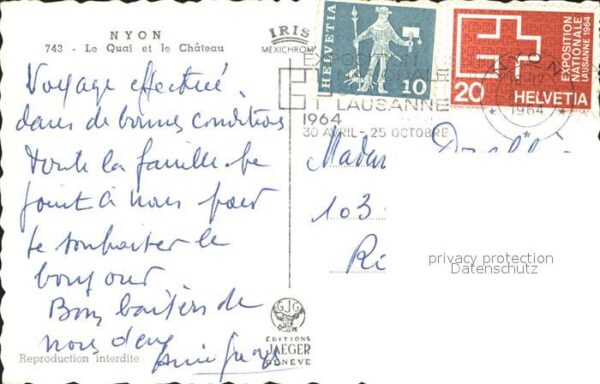 NYON
743 - Le Quai et le Château
IRIS
MEXICHROM
HELVETIA
10
EXPOSITION
NATIONALE
LAUSANNE 1964
20
HELVETIA
EXPOSITION
LAUSANNE
1964
30 AVRIL - 25 OCTOBRE
NYON
1964
Voyage effectué
dans de bonnes conditions
toute la famille se
joint à nous pour
te souhaiter le
bonjour.
Bons baisers de
nous deux
Madame
103
Ri
privacy protection
Datenschutz
GJG
EDITIONS
JAEGER
GENÈVE
Reproduction interdite